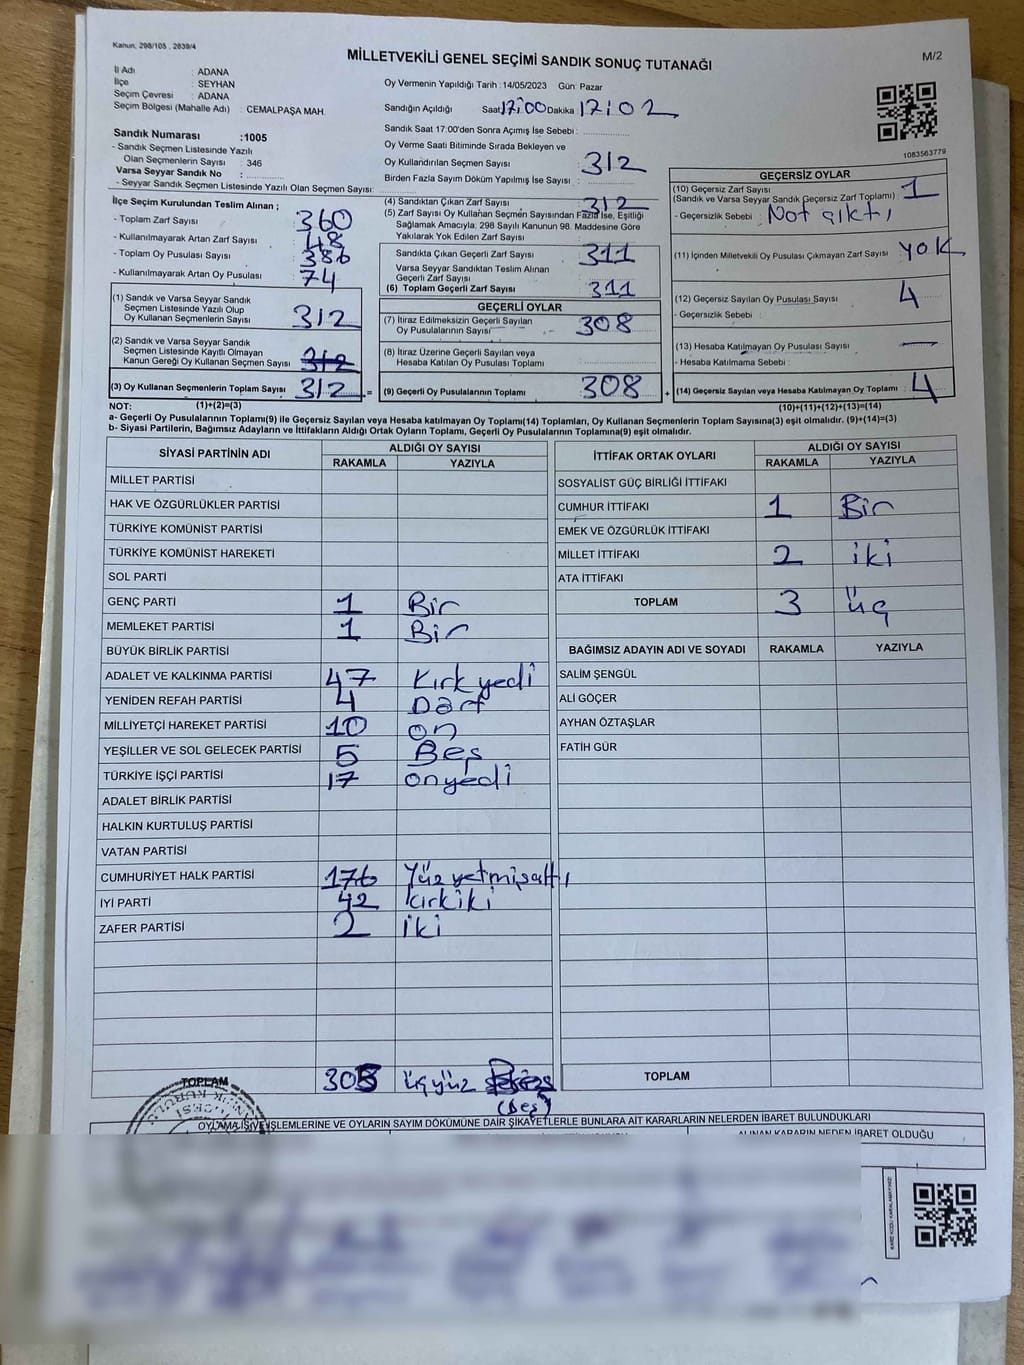 Kanun, 298/105 , 2839/4
MİLLETVEKİLİ GENEL SEÇİMİ SANDIK SONUÇ TUTANAĞI
M/2
İl Adı : ADANA
İlçe : SEYHAN
Seçim Çevresi : ADANA
Seçim Bölgesi (Mahalle Adı) : CEMALPAŞA MAH.
Sandık Numarası :1005
- Sandık Seçmen Listesinde Yazılı
Olan Seçmenlerin Sayısı : 346
Varsa Seyyar Sandık No :
- Seyyar Sandık Seçmen Listesinde Yazılı Olan Seçmen Sayısı:
Oy Vermenin Yapıldığı Tarih :14/05/2023 Gün: Pazar
Sandığın Açıldığı Saat 17:00 Dakika 17:02
Sandık Saat 17:00'den Sonra Açımış İse Sebebi :
Oy Verme Saati Bitiminde Sırada Bekleyen ve
Oy Kullandırılan Seçmen Sayısı : 312
Birden Fazla Sayım Döküm Yapılmış İse Sayısı :
1083563779
İlçe Seçim Kurulundan Teslim Alınan ;
- Toplam Zarf Sayısı : 360
- Kullanılmayarak Artan Zarf Sayısı : 48
- Toplam Oy Pusulası Sayısı : 386
- Kullanılmayarak Artan Oy Pusulası : 74
(1) Sandık ve Varsa Seyyar Sandık
Seçmen Listesinde Yazılı Olup
Oy Kullanan Seçmenlerin Sayısı : 312
(2) Sandık ve Varsa Seyyar Sandık
Seçmen Listesinde Kayıtlı Olmayan
Kanun Gereği Oy Kullanan Seçmen Sayısı : 312
(3) Oy Kullanan Seçmenlerin Toplam Sayısı : 312 =
(4) Sandıktan Çıkan Zarf Sayısı : 312
(5) Zarf Sayısı Oy Kullanan Seçmen Sayısından Fazla İse, Eşitliği
Sağlamak Amacıyla; 298 Sayılı Kanunun 98. Maddesine Göre
Yakılarak Yok Edilen Zarf Sayısı :
Sandıkta Çıkan Geçerli Zarf Sayısı : 311
Varsa Seyyar Sandıktan Teslim Alınan
Geçerli Zarf Sayısı :
(6) Toplam Geçerli Zarf Sayısı : 311
GEÇERLİ OYLAR
(7) İtiraz Edilmeksizin Geçerli Sayılan
Oy Pusulalarının Sayısı : 308
(8) İtiraz Üzerine Geçerli Sayılan veya
Hesaba Katılan Oy Pusulası Toplamı :
(9) Geçerli Oy Pusulalarının Toplamı : 308 +
GEÇERSİZ OYLAR
(10) Geçersiz Zarf Sayısı : 1
(Sandık ve Varsa Seyyar Sandık Geçersiz Zarf Toplamı)
- Geçersizlik Sebebi : Not çıktı
(11) İçinden Milletvekili Oy Pusulası Çıkmayan Zarf Sayısı : yok
(12) Geçersiz Sayılan Oy Pusulası Sayısı : 4
- Geçersizlik Sebebi :
(13) Hesaba Katılmayan Oy Pusulası Sayısı : —
- Hesaba Katılmama Sebebi :
(14) Geçersiz Sayılan veya Hesaba Katılmayan Oy Toplamı : 4
NOT: (1)+(2)=(3) (10)+(11)+(12)+(13)=(14)
a- Geçerli Oy Pusulalarının Toplamı(9) ile Geçersiz Sayılan veya Hesaba katılmayan Oy Toplamı(14) Toplamları, Oy Kullanan Seçmenlerin Toplam Sayısına(3) eşit olmalıdır. (9)+(14)=(3)
b- Siyasi Partilerin, Bağımsız Adayların ve İttifakların Aldığı Ortak Oyların Toplamı, Geçerli Oy Pusulalarının Toplamına(9) eşit olmalıdır.
SİYASİ PARTİNİN ADI ALDIĞI OY SAYISI
RAKAMLA YAZIYLA
MİLLET PARTİSİ
HAK VE ÖZGÜRLÜKLER PARTİSİ
TÜRKİYE KOMÜNİST PARTİSİ
TÜRKİYE KOMÜNİST HAREKETİ
SOL PARTİ
GENÇ PARTİ 1 Bir
MEMLEKET PARTİSİ 1 Bir
BÜYÜK BİRLİK PARTİSİ
ADALET VE KALKINMA PARTİSİ 47 Kırkyedi
YENİDEN REFAH PARTİSİ 4 Dört
MİLLİYETÇİ HAREKET PARTİSİ 10 on
YEŞİLLER VE SOL GELECEK PARTİSİ 5 Beş
TÜRKİYE İŞÇİ PARTİSİ 17 onyedi
ADALET BİRLİK PARTİSİ
HALKIN KURTULUŞ PARTİSİ
VATAN PARTİSİ
CUMHURİYET HALK PARTİSİ 176 Yüz yetmişaltı
İYİ PARTİ 42 kırkiki
ZAFER PARTİSİ 2 iki
TOPLAM 305 üçyüz
(beş)
İTTİFAK ORTAK OYLARI ALDIĞI OY SAYISI
RAKAMLA YAZIYLA
SOSYALİST GÜÇ BİRLİĞİ İTTİFAKI
CUMHUR İTTİFAKI 1 Bir
EMEK VE ÖZGÜRLÜK İTTİFAKI
MİLLET İTTİFAKI 2 iki
ATA İTTİFAKI
TOPLAM 3 üç
BAĞIMSIZ ADAYIN ADI VE SOYADI RAKAMLA YAZIYLA
SALİM ŞENGÜL
ALİ GÖÇER
AYHAN ÖZTAŞLAR
FATİH GÜR
TOPLAM
OYLAMA İŞİ VE İŞLEMLERİNE VE OYLARIN SAYIM DÖKÜMÜNE DAİR ŞİKAYETLERLE BUNLARA AİT KARARLARIN NELERDEN İBARET BULUNDUKLARI
ALINAN KARARIN NEDEN İBARET OLDUĞU